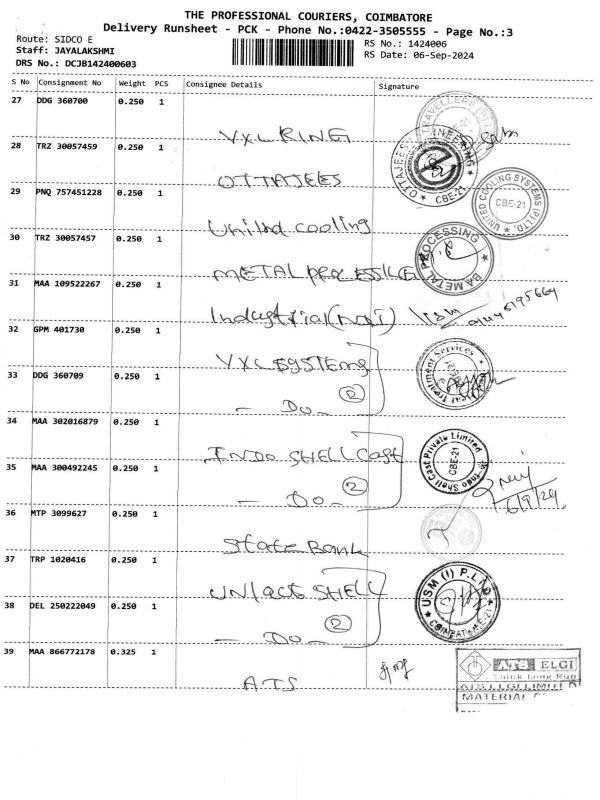 THE PROFESSIONAL COURIERS, COIMBATORE
Delivery Runsheet - PCK - Phone No.:0422-3505555 - Page No.:3
Route: SIDCO E
Staff: JAYALAKSHMI
DRS No.: DCJB142400603
RS No.: 1424006
RS Date: 06-Sep-2024
S No Consignment No Weight PCS Consignee Details Signature
27 DDG 360700 0.250 1
VXL RING
28 TRZ 30057459 0.250 1
OTTAJEES
29 PNQ 757451228 0.250 1
United cooling
30 TRZ 30057457 0.250 1
METAL
31 MAA 109522267 0.250 1
Industrial
32 GPM 401730 0.250 1
VXL SYSTEMS
33 DDG 360709 0.250 1
- Do - 2
34 MAA 302016879 0.250 1
INDO SHELL Cast
35 MAA 300492245 0.250 1
- Do - 2
36 MTP 3099627 0.250 1
State Bank
37 TRP 1020416 0.250 1
SHELL
38 DEL 250222049 0.250 1
- Do - 2
39 MAA 866772178 0.325 1
ATS
OTTAJEES ENGINEERING
CBE-21
UNITED COOLING SYSTEMS (P) LTD.
CBE-21
BA METAL PROCESSING
Treatment Services
Indo Shell Cast Private Limited
CBE-21
6/9/24
USM (I) P. LTD
ATS ELGI
Think Long Run
ATS ELGI LIMITED
MATERIAL